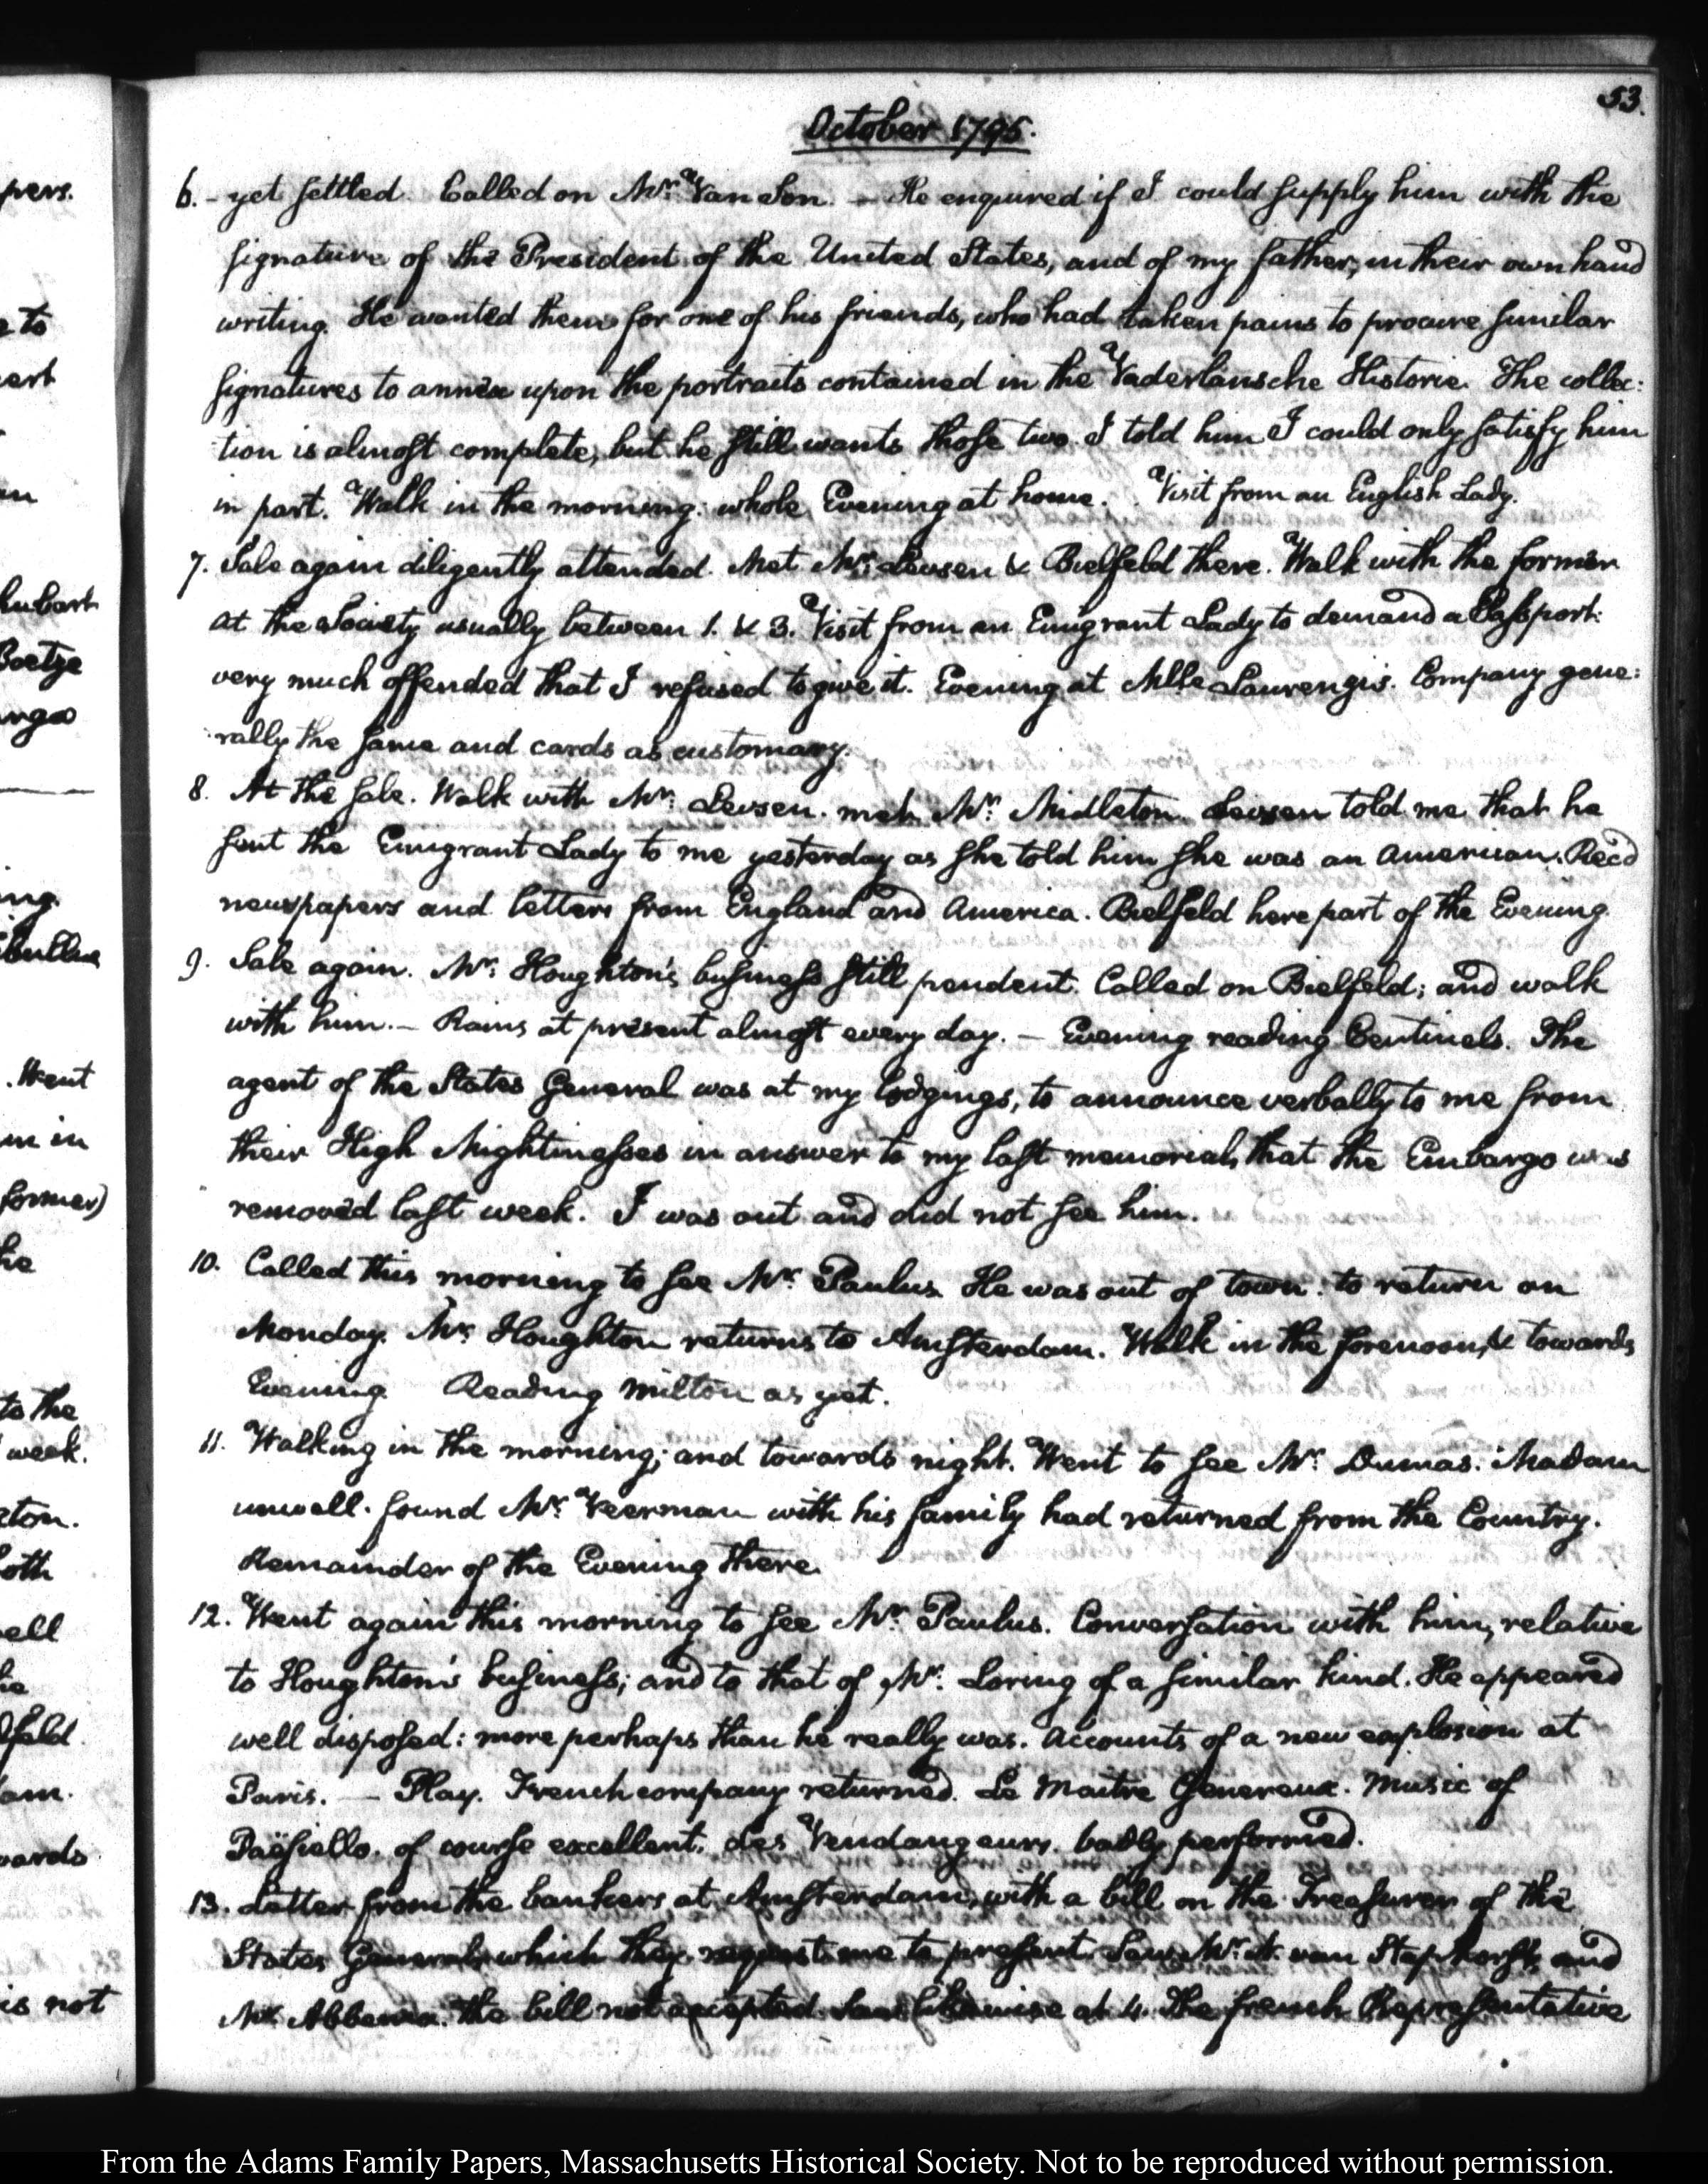 53.
October 1795.
pers.
e to
ert
an
hubart
Boetze
argo
ing.
Went
m in
former)
he
to the
week.
eton.
oth
well
he
lfeld.
am.
wards
is not
6. - yet settled. Called on Mr. Van Son. — He enquired if I could supply him with the
signature of the President of the United States, and of my father, in their own hand
writing. He wanted them for one of his friends, who had taken pains to procure similar
signatures to annex upon the portraits contained in the Vaderlansche Historie. The collec:
tion is almost complete, but he still wants those two. I told him I could only satisfy him
in part. Walk in the morning: whole Evening at home. Visit from an English Lady.
7. Sale again diligently attended. Met Mr. Levsen & Bielfeld there. Walk with the former
at the Society usually between 1. & 3. Visit from an Emigrant Lady to demand a Passport:
very much offended that I refused to give it. Evening at Mlle Laurengis. Company gene:
rally the same and cards as customary.
8. At the sale. Walk with Mr: Levsen. met Mr: Midleton. Levsen told me that he
sent the Emigrant Lady to me yesterday as she told him she was an American. Recd
newspapers and letters from England and America. Bielfeld here part of the Evening.
9. Sale again. Mr: Houghton's business still pendent. Called on Bielfeld; and walk
with him. — Rains at present almost every day. — Evening reading Centinels. The
agent of the States General was at my lodgings, to announce verbally to me from
their High Mightinesses in answer to my last memorial, that the Embargo was
removed last week. I was out and did not see him.
10. Called this morning to see Mr. Paulus. He was out of town: to return on
Monday. Mr. Houghton returns to Amsterdam. Walk in the forenoon, & towards
Evening. Reading Milton as yet.
11. Walking in the morning; and towards night. Went to see Mr. Dumas. Madam
unwell. found Mr. Veerman with his family had returned from the Country.
Remainder of the Evening there.
12. Went again this morning to see Mr. Paulus. Conversation with him, relative
to Houghton's business; and to that of Mr. Loring of a similar kind. He appeared
well disposed: more perhaps than he really was. Accounts of a new explosion at
Paris. — Play. French company returned. Le Maitre Genereux. Music of
Paësiello. of course excellent. Les Vendangeurs. badly performed.
13. Letter from the bankers at Amsterdam, with a bill on the Treasurer of the
States General, which they request me to present. Saw Mr. N. van Staphorst, and
Mr. Abbema. the bill not accepted. Saw likewise at 4. the french Representative
From the Adams Family Papers, Massachusetts Historical Society. Not to be reproduced without permission.